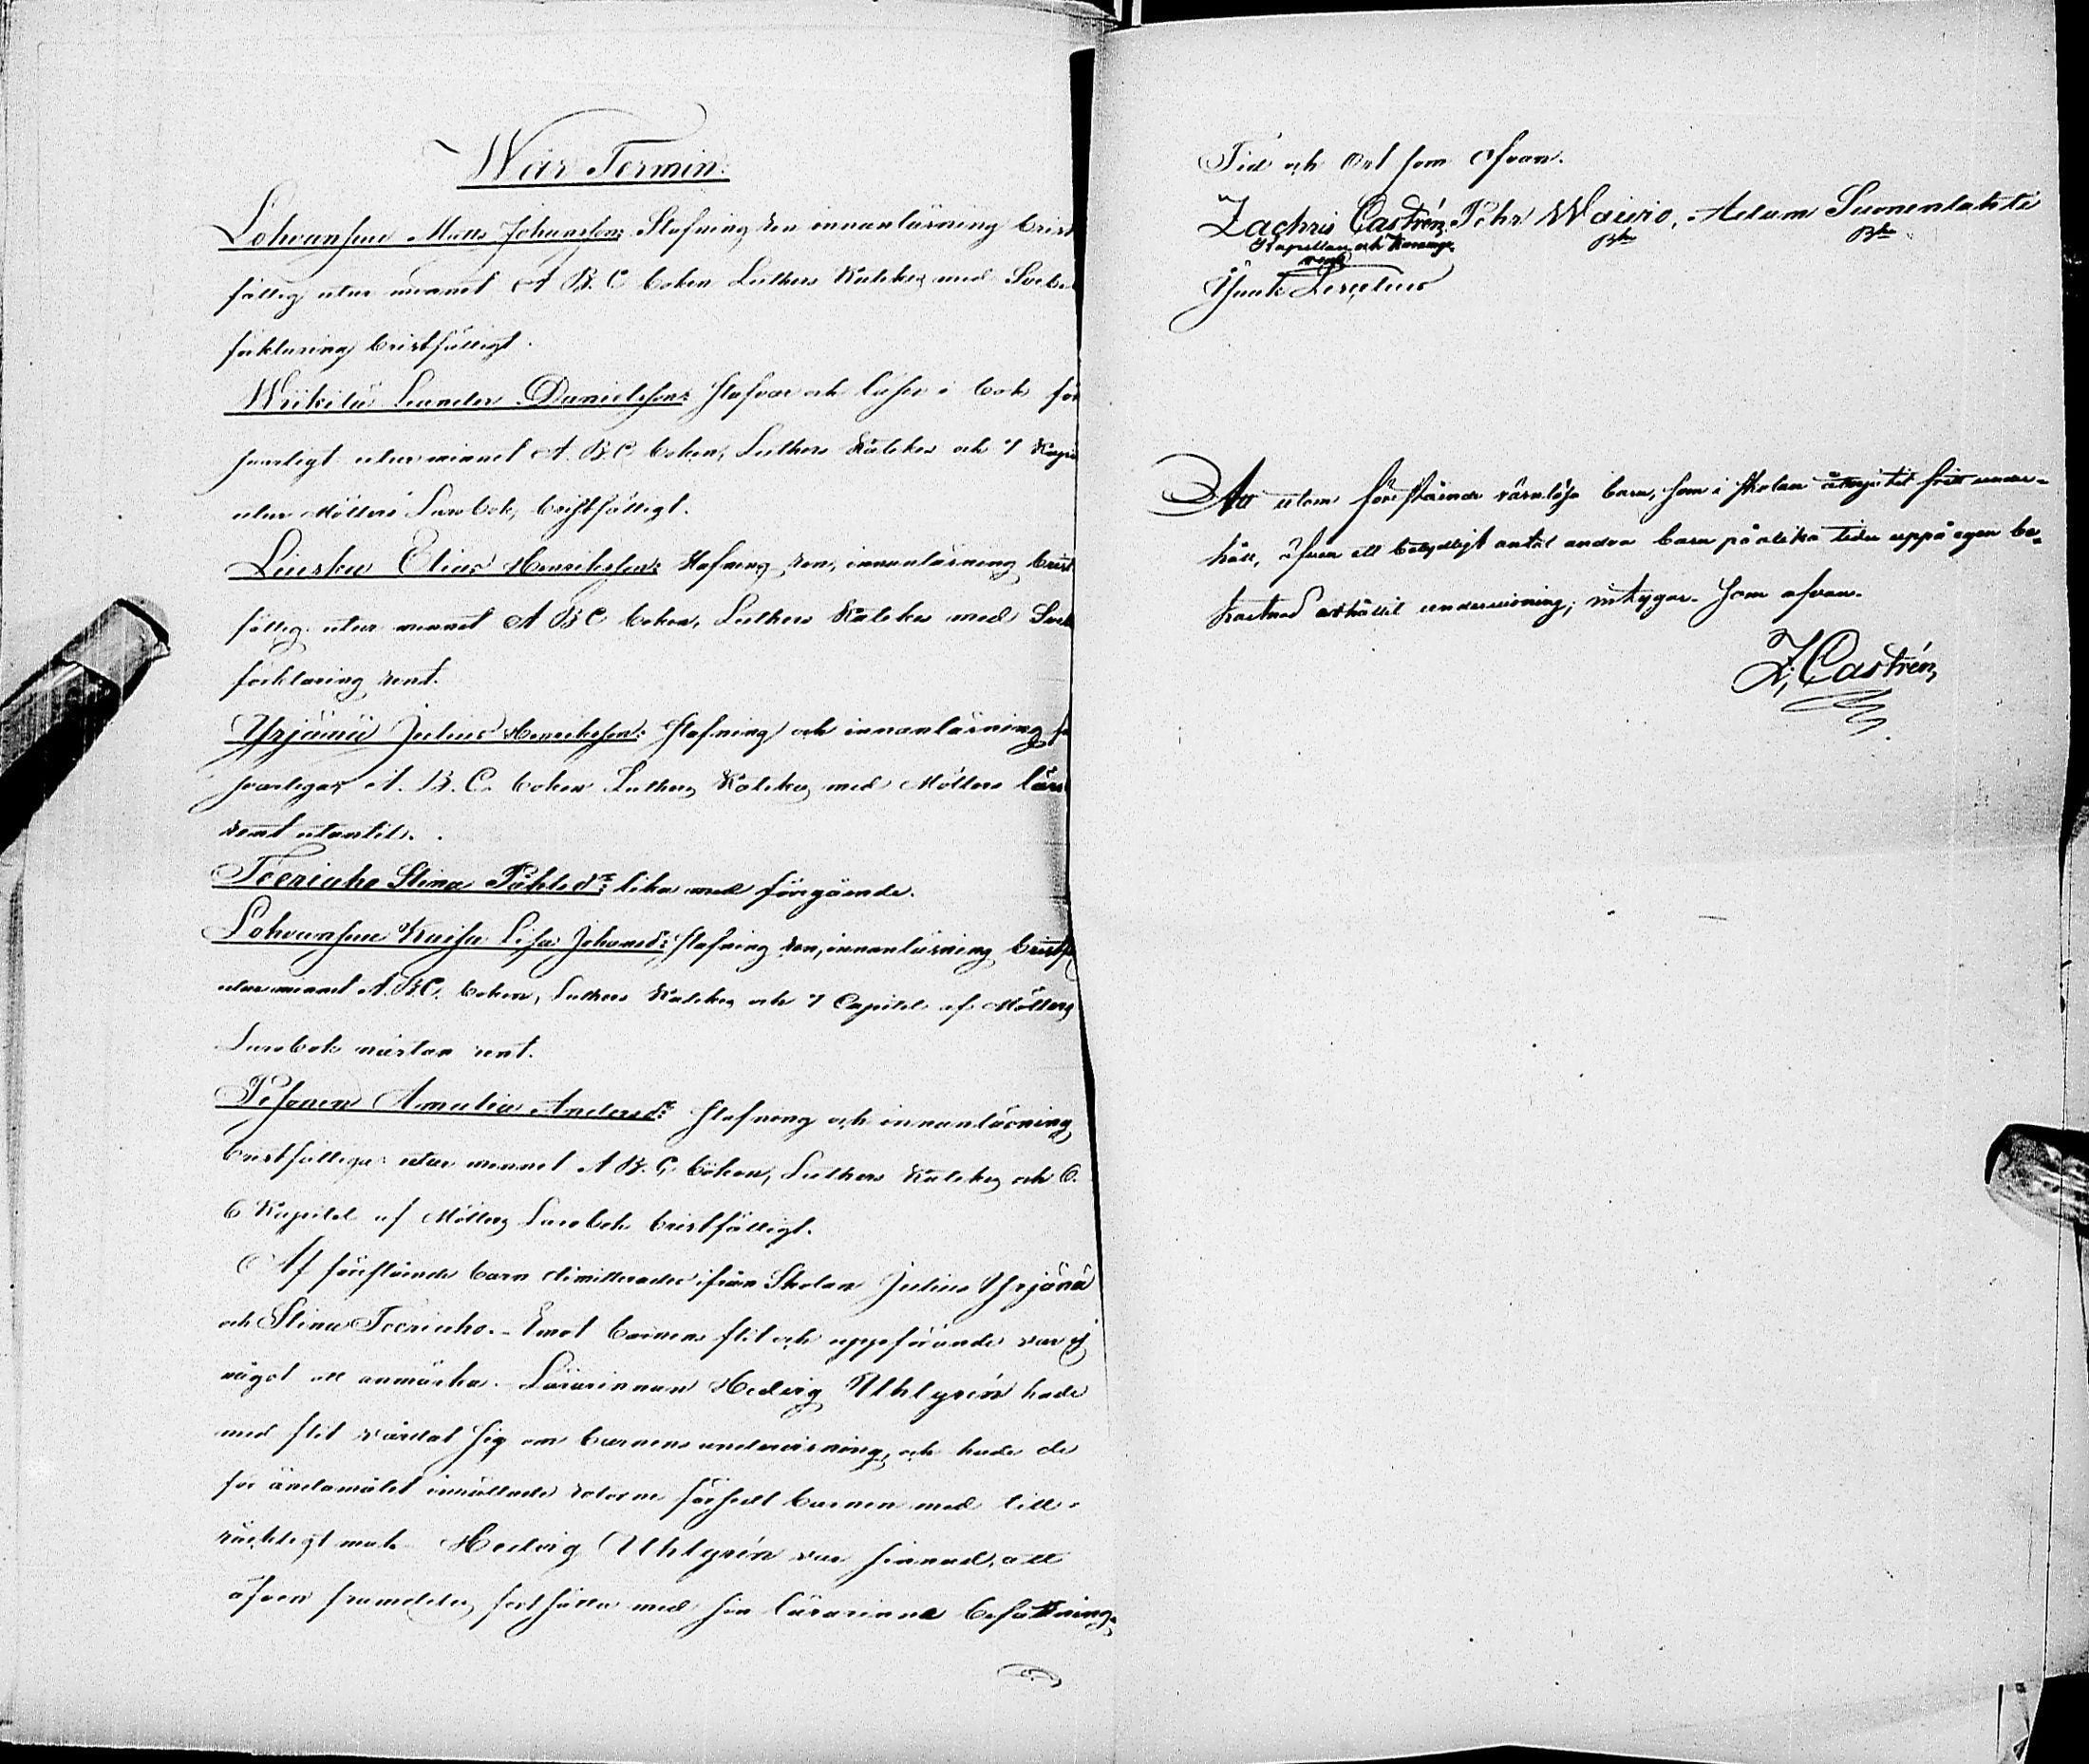 Wår Termin.
Lohvansuu Matts Johansson: Stafning ren innanläsning brist
fällig utur minnet A B. C boken Luthers Katekes med Svebe
förklaring bristfälligt.
Wiikilä Leander Danielsson: stafvar och läser i bok för
svarligt utur minnet A. B. C boken, Luthers Katekes och 7 Kapi
utur Möllers Lärobok, bristfälligt.
Liusku Elias Henriksson: Stafning ren, innanläsning brist
fällig utur minnet A B C boken, Luthers Katekes med Sveb
förklaring rent.
Yrjänä Julius Henriksson: stafning och innanläsning för
svarligas A. B. C. boken Luthers Katekes med Möllers läro
rent utantill.
Toeriuho Stina Påhlsdr: lika med föregående.
Lohvansuu Kaisa Lisa Johansdr: stafning ren, innanläsning bristfä
utur minnet A. B. C. boken, Luthers Katekes och 7 Capitel af Möllers
Lärobok nästan rent.
Pesonen Amalia Andersdr: stafning och innanläsning
bristfälliga utur minnet A B. C. boken, Luthers Katekes och 6.
6 Kapitel af Möllers Lärobok bristfälligt.
Af förestående barn dimitterades ifrån Skolan Julius Yrjänä
och Stina Toeriuho. - Emot barnens flit och uppförande var ej
något att anmärka. - Lärarinnan Hedvig Uhlgrén hade
med flit vårdat sig om barnens undervisning, och hade de
för ändamålet inrättade rotorne försedt barnen med till-
räckligt mat. Hedvig Uhlgrén var sinnad, att
äfven framdeles fortsätta med sin lärarinne befattning.
Tid och Ort som ofvan.
Zachris Castrén, Pehr Wäiriö, Adam Suonenlahti
Kapellan och
Att utom förestående värnlösa barn, som i skolan åtnjutit fritt under-
håll, äfven ett betydligt antal andra barn på olika tider uppå egen be-
kostnad erhållit undervisning; intygar. som ofvan.
Z, Castrén,